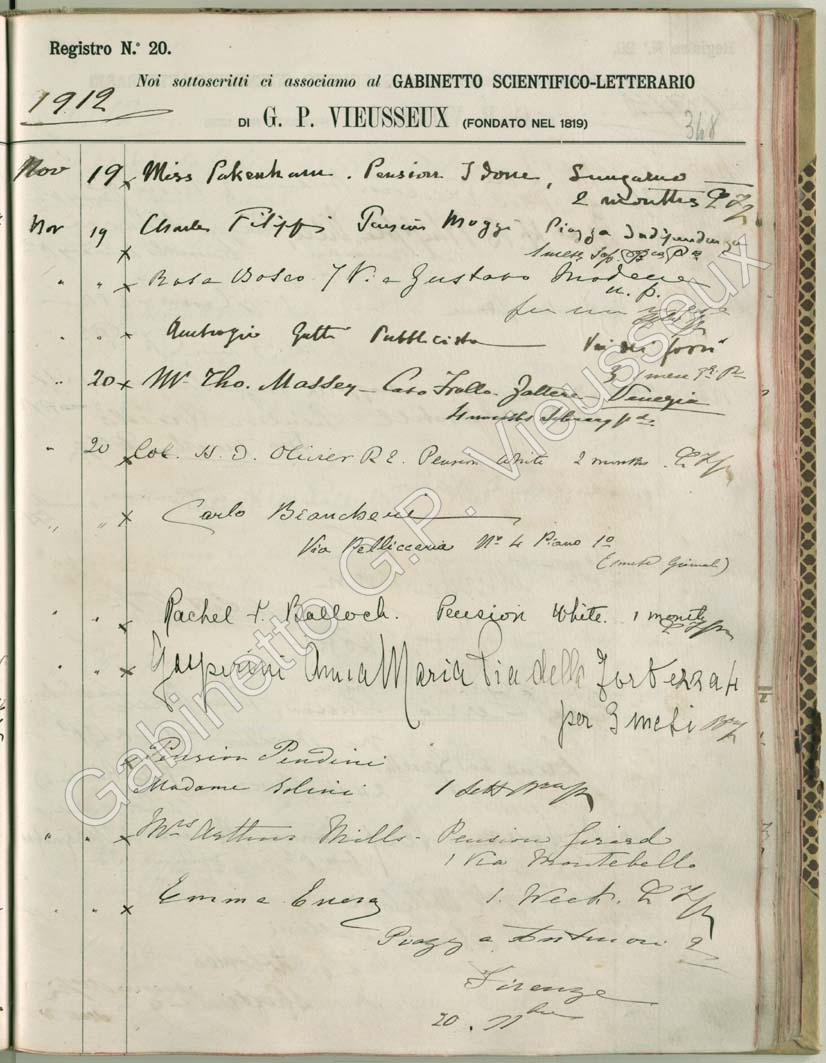 Registro N.° 20.
Noi sottoscritti ci associamo al GABINETTO SCIENTIFICO-LETTERARIO
1912
DI G. P. VIEUSSEUX (FONDATO NEL 1819)
368
Nov 19 x Miss Pakenham. Pension Idone, Lungarno
2 months
Nov 19 Charles Filippi Pension Moggi Piazza Indipendenza
x 1 mese
" " x Rosa Bosco 7 Via Gustavo Modena
n. p.
per un mese
" " x Ambrogio Gatti Pubblicista Via dei
3 mesi
" 20 x Mr Tho. Massey - Casa Zattere Venezia
4 months Library
" 20 x Col. H. D. Olivier R E. Pension White 2 months.
" " x Carlo
Via Pellicceria No 4 Piano 1o
" " x Rachel Balloch. Pension White. 1 month
" " x Gasperini Anna Maria Via della Fortezza 4
per 3 mesi
x Pension Pendini
Madame Solini 1
" " x Mrs Arthur Mills - Pension Girard
1 Via Montebello
" " x Emma 1. Week.
Piazza Antinori 2
Firenze
20. 11bre
Gabinetto G.P. Vieusseux